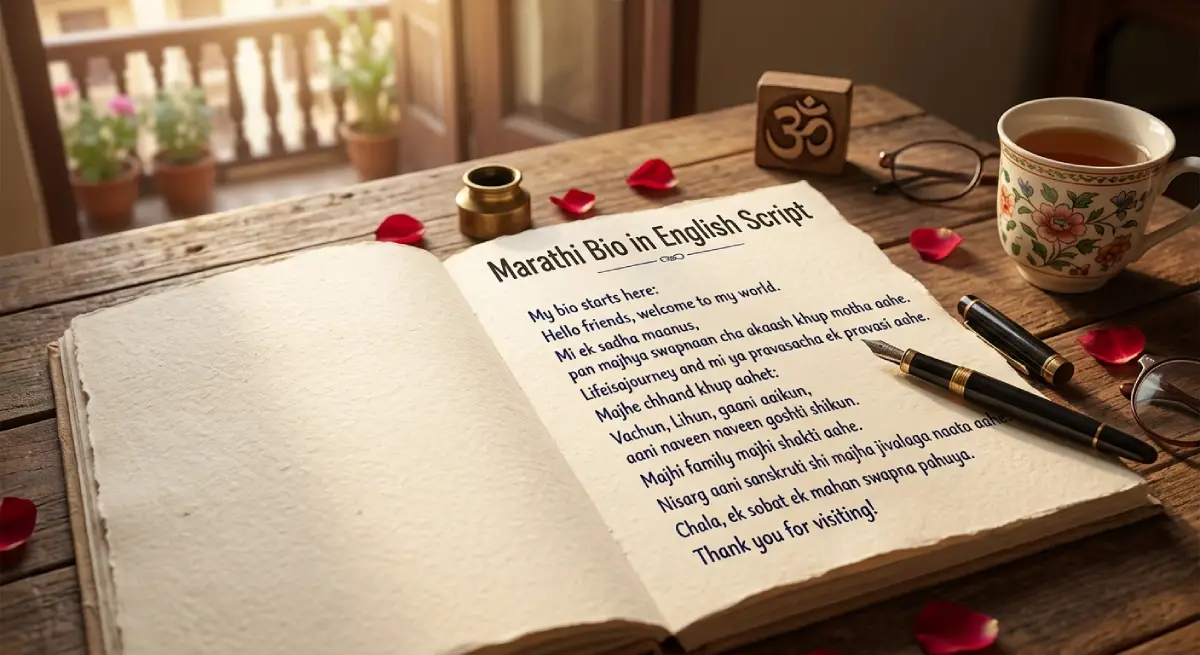 Marathi Bio in English Script
My bio starts here:
Hello friends, welcome to my world.
Mi ek sadha maanus,
pan majhya swapnaan cha akaash khup motha aahe.
Lifeisajourney and mi ya pravasacha ek pravasi aahe.
Majhe chhand khup aahet:
Vachun, Lihun, gaani aaikun,
aani naveen naveen goshti shikun.
Majhi family majhi shakti aahe.
Nisarg aani sanskruti shi majha jivalaga naata aahe.
Chala, ek sobat ek mahan swapna pahuya.
Thank you for visiting!
ॐ